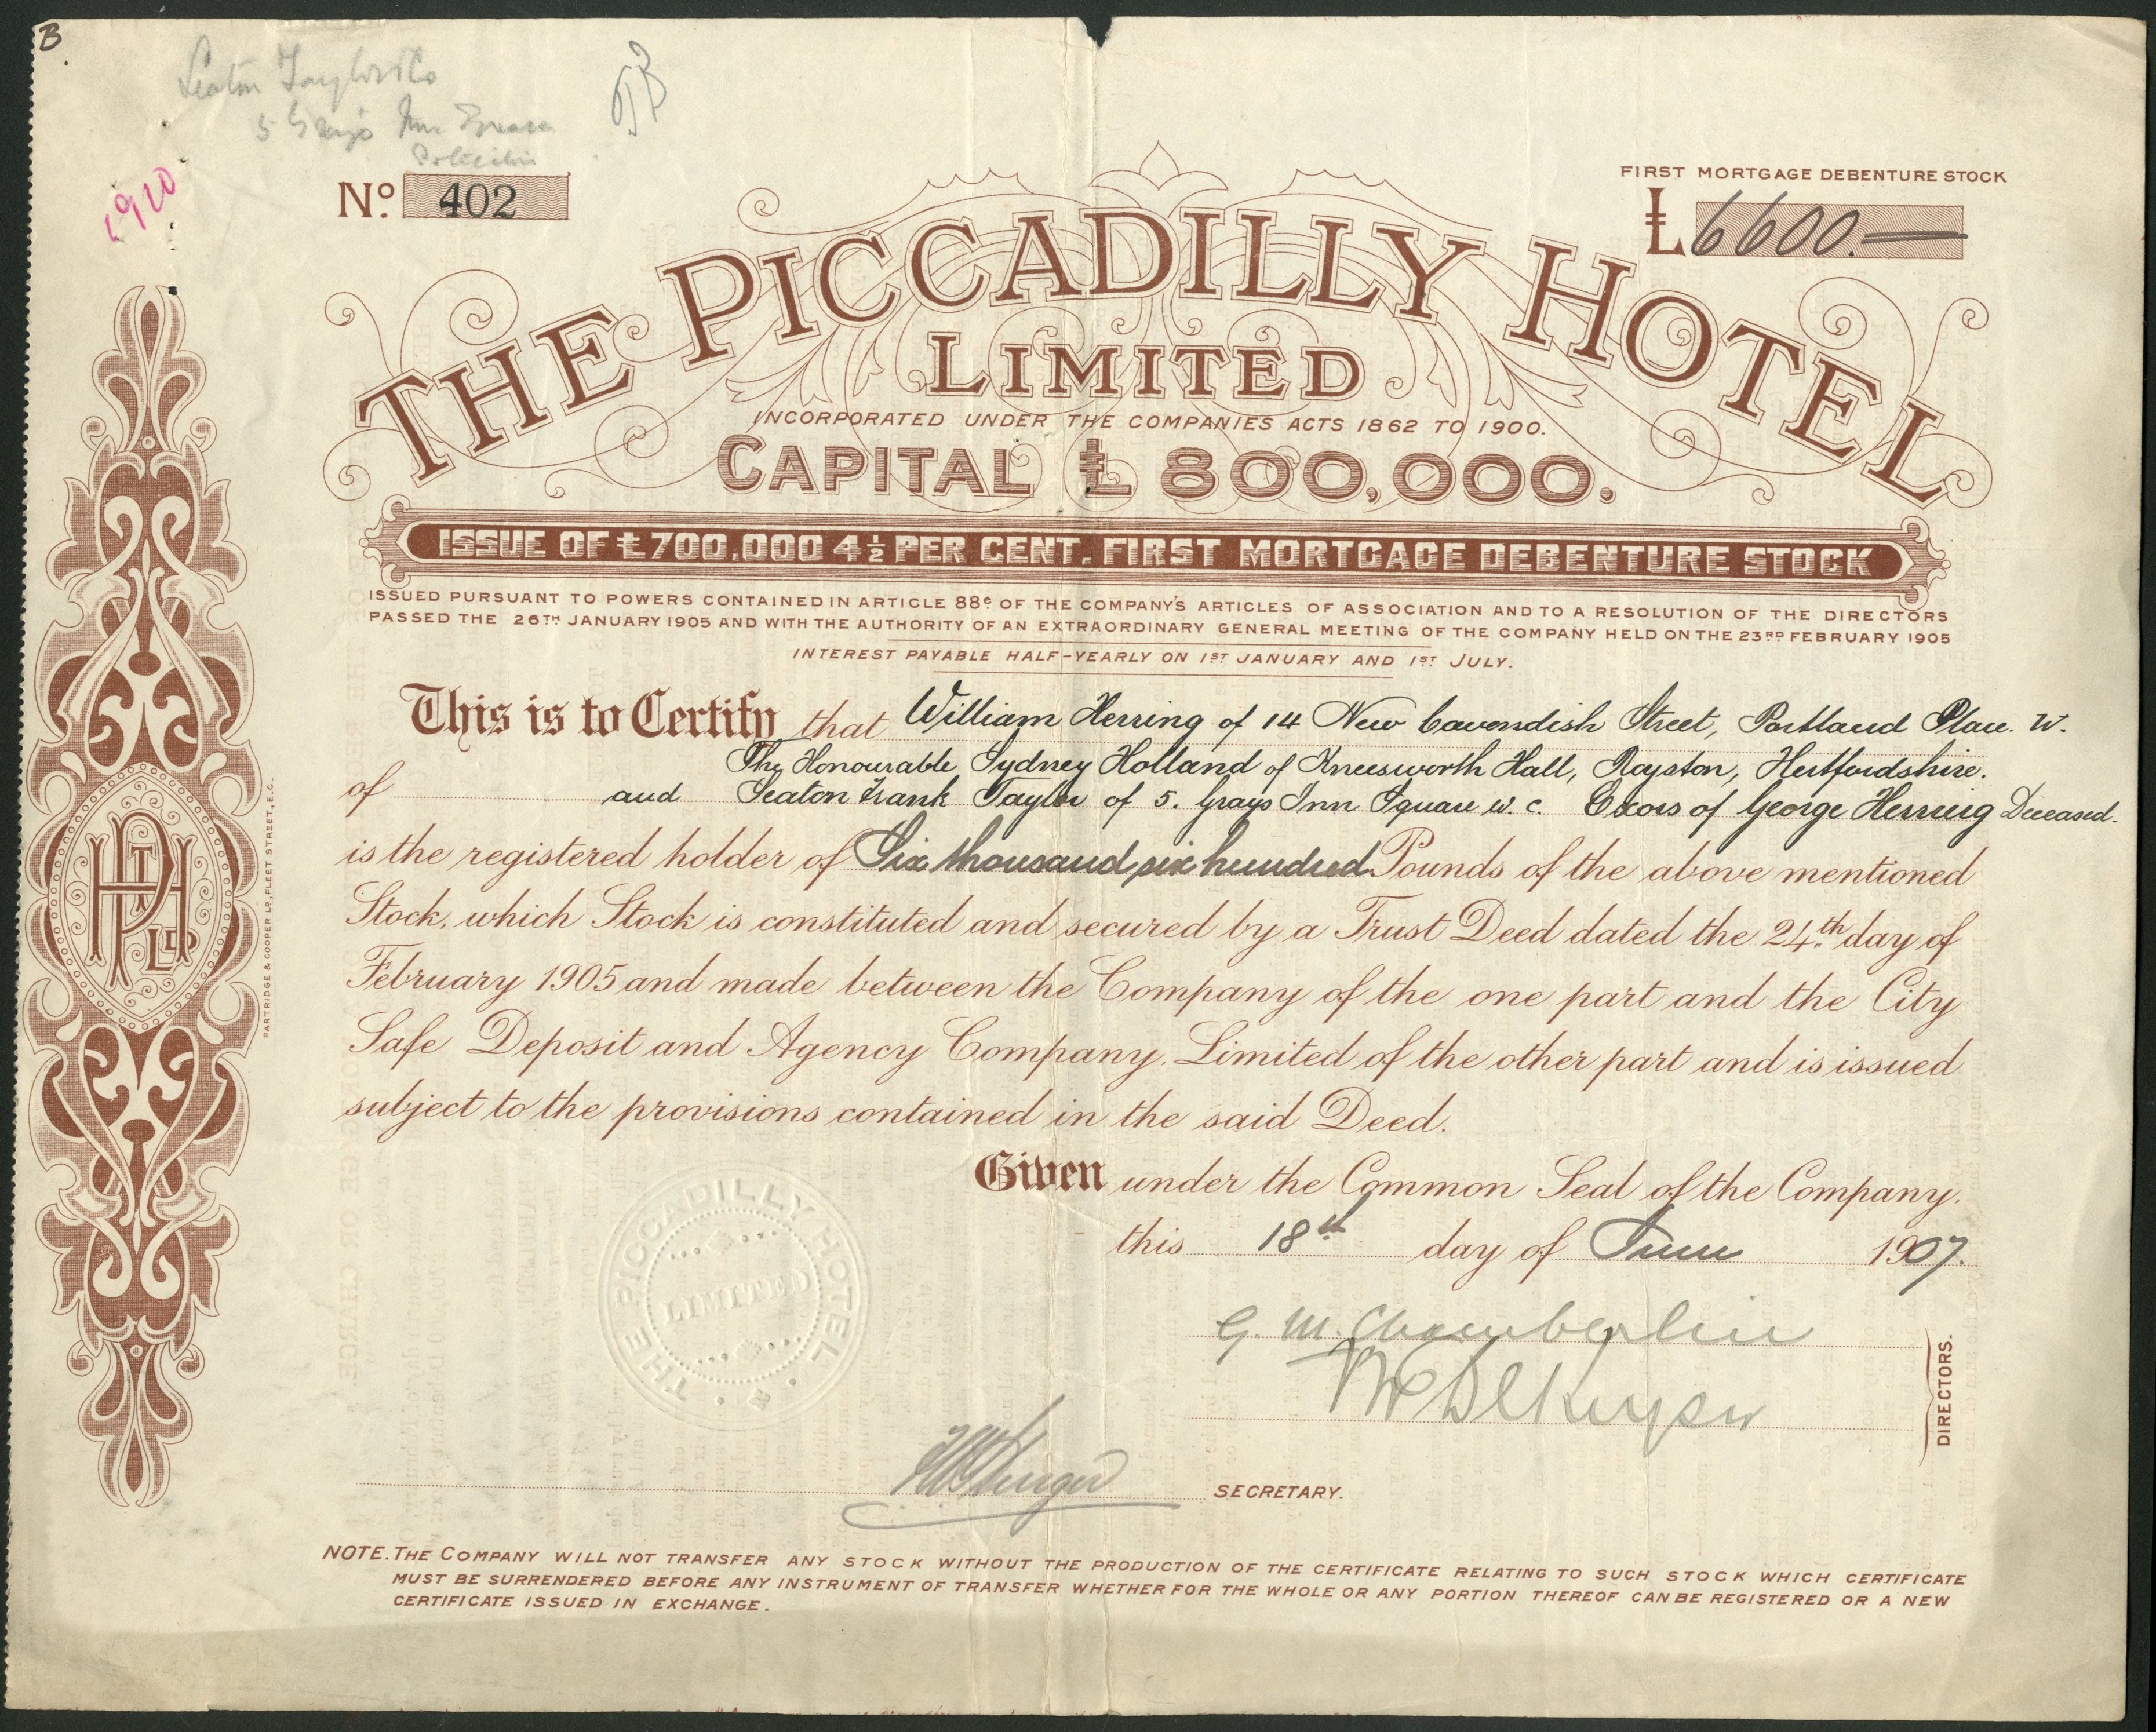 B
Seaton Taylor & Co
5 Grays Inn Square
1910
No. 402
FIRST MORTGAGE DEBENTURE STOCK
£6600.—
THE PICCADILLY HOTEL
LIMITED
INCORPORATED UNDER THE COMPANIES ACTS 1862 TO 1900.
CAPITAL £800,000.
ISSUE OF £700,000 4½ PER CENT. FIRST MORTGAGE DEBENTURE STOCK
ISSUED PURSUANT TO POWERS CONTAINED IN ARTICLE 88e OF THE COMPANY'S ARTICLES OF ASSOCIATION AND TO A RESOLUTION OF THE DIRECTORS
PASSED THE 26TH JANUARY 1905 AND WITH THE AUTHORITY OF AN EXTRAORDINARY GENERAL MEETING OF THE COMPANY HELD ON THE 23RD FEBRUARY 1905
INTEREST PAYABLE HALF-YEARLY ON 1ST JANUARY AND 1ST JULY.
This is to Certify that William Herring of 14 New Cavendish Street, Portland Place. W.
The Honourable Sydney Holland of Kneesworth Hall, Royston, Hertfordshire.
of and Seaton Frank Taylor of 5. Grays Inn Square W.C. Excors of George Herring Deceased.
is the registered holder of Six thousand six hundred Pounds of the above mentioned
Stock, which Stock is constituted and secured by a Trust Deed dated the 24th day of
February 1905 and made between the Company of the one part and the City
Safe Deposit and Agency Company, Limited of the other part and is issued
subject to the provisions contained in the said Deed.
Given under the Common Seal of the Company.
this 18th day of June 1907.
G. M. Chamberlin
DIRECTORS.
SECRETARY.
THE PICCADILLY HOTEL
LIMITED
PTH LD
PARTRIDGE & COOPER LD, FLEET STREET, E.C.
NOTE. THE COMPANY WILL NOT TRANSFER ANY STOCK WITHOUT THE PRODUCTION OF THE CERTIFICATE RELATING TO SUCH STOCK WHICH CERTIFICATE
MUST BE SURRENDERED BEFORE ANY INSTRUMENT OF TRANSFER WHETHER FOR THE WHOLE OR ANY PORTION THEREOF CAN BE REGISTERED OR A NEW
CERTIFICATE ISSUED IN EXCHANGE.